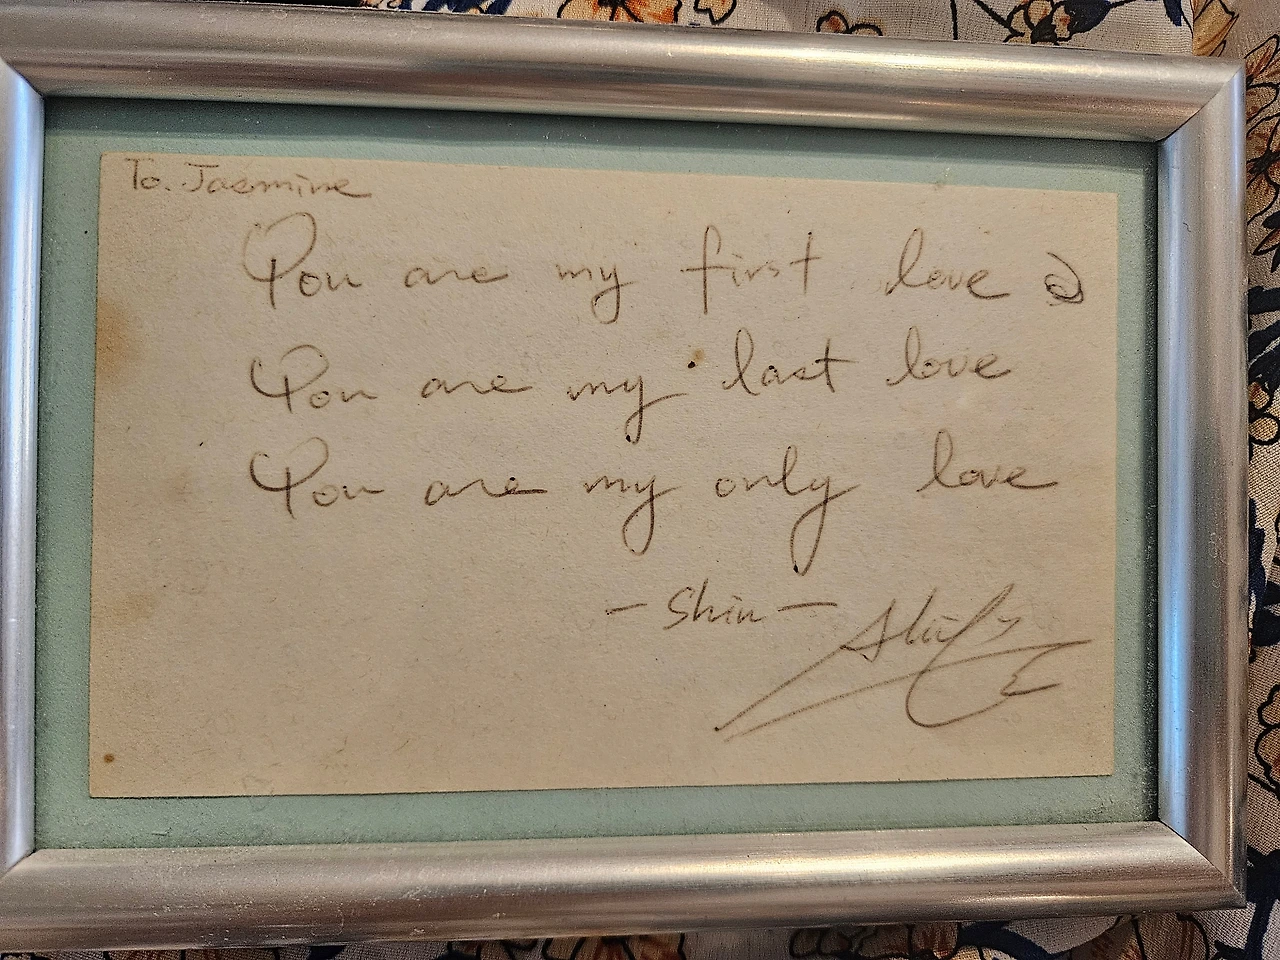 To. Jasmine
You are my first love
You are my last love
You are my only love
- Shin -